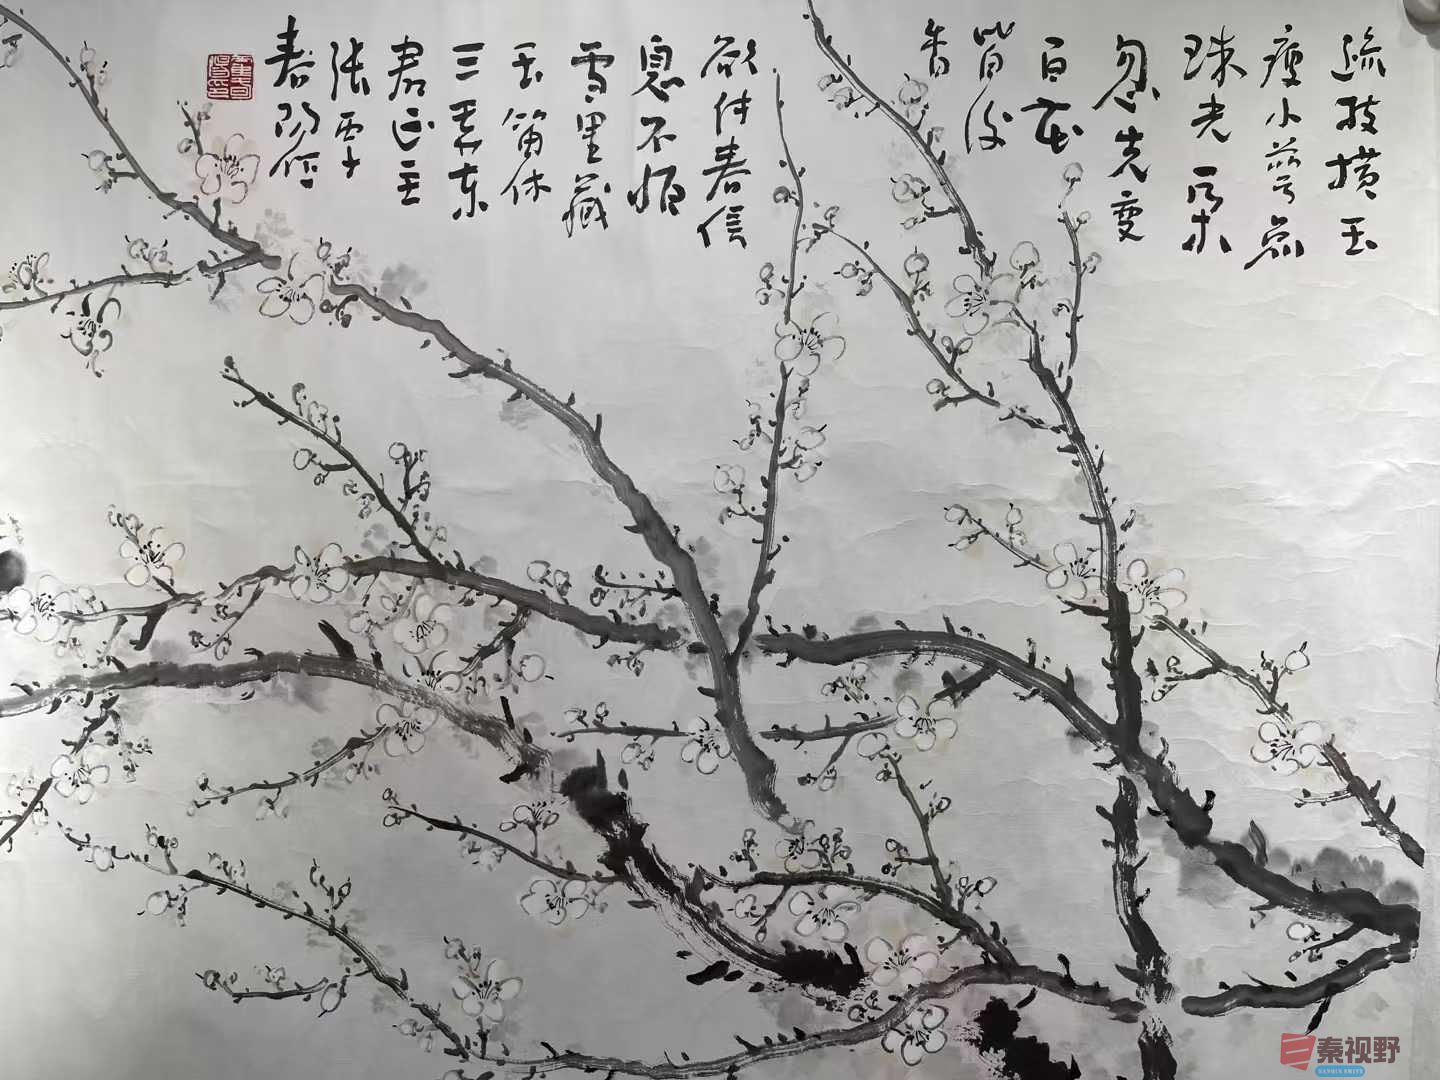 疏枝横玉
瘦小萼点
珠光一朵
忽先变
百花
皆后
香
欲传春信
息不怕
雪里藏
玉笛休
三弄东
君正主
张
春阳
秦视野